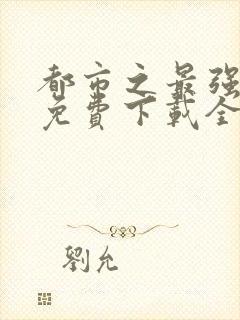 都市之最强
免費下載全
劉允